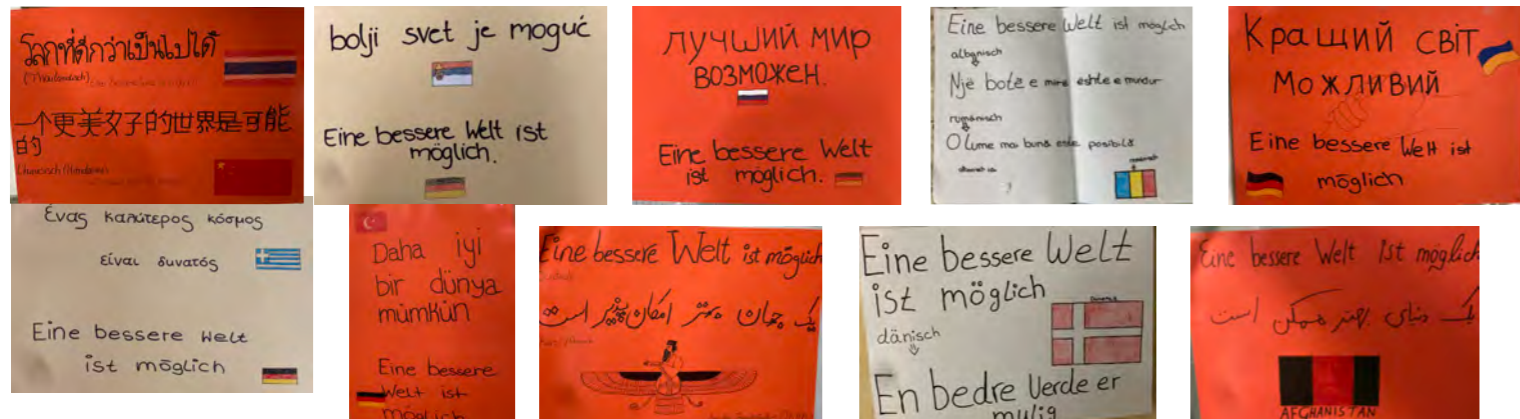 โลกที่ดีกว่าเป็นไปได้
(Thailändisch)
一个更美好的世界是可能
的
Chinesisch (Mandarin)
bolji svet je moguć
Eine bessere Welt ist
möglich.
лучший мир
возможен.
Eine bessere Welt
ist möglich.
Eine bessere Welt ist möglich
albanisch
Një botë e mirë eshte e mundur
rumänisch
O lume mai bună este posibilă
Кращий світ
можливий
Eine bessere Welt ist
möglich
Ένας καλύτερος κόσμος
είναι δυνατός
Eine bessere Welt
ist möglich
Daha iyi
bir dünya
mümkün
Eine bessere
Welt ist
möglich
Eine bessere Welt ist möglich
Deutsch
یک جهان بهتر امکان پذیر است
Eine bessere Welt
ist möglich
dänisch
En bedre Verde er
mulig
Eine bessere Welt ist möglich
یک دنیای بهتر ممکن است
AFGHANISTAN